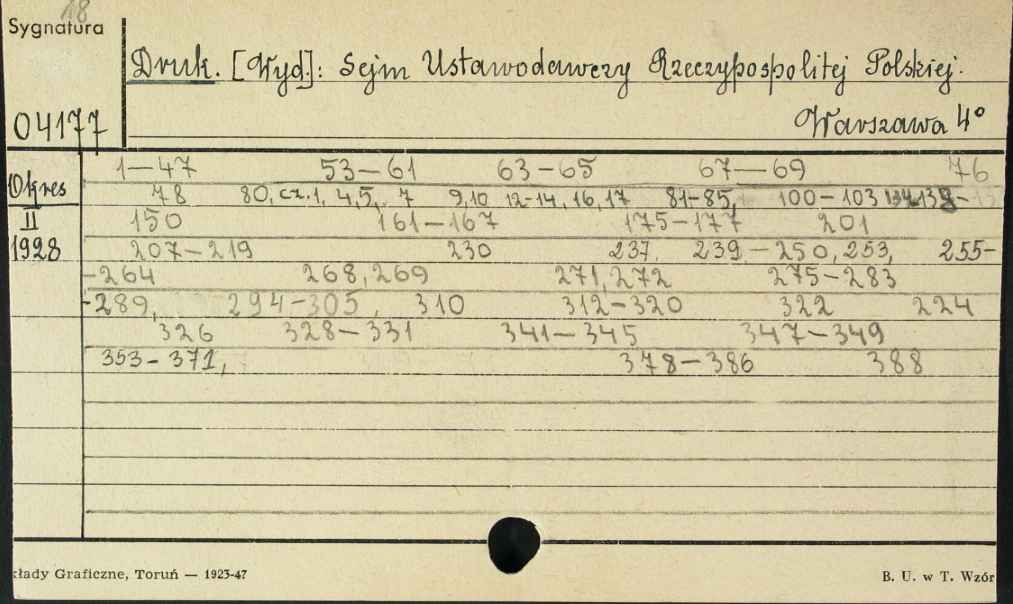 18
Sygnatura
Druk. [Wyd]: Sejm Ustawodawczy Rzeczypospolitej Polskiej.
04177
Warszawa 4°
1—47 53—61 63—65 67—69 76
Okres
78 80, cz. 1, 4, 5, 7 9, 10 12-14, 16, 17 81-85, 100-103
II
150 161-167 175-177 201
1928
207—219 230 237, 239,—250, 253, 255-
-264 268, 269 271, 272 275—283
-289, 294-305, 310 312-320 322 224
326 328—331 341—345 347—349
353-371, 378-386 388
kłady Graficzne, Toruń — 1923-47
B. U. w T. Wzór